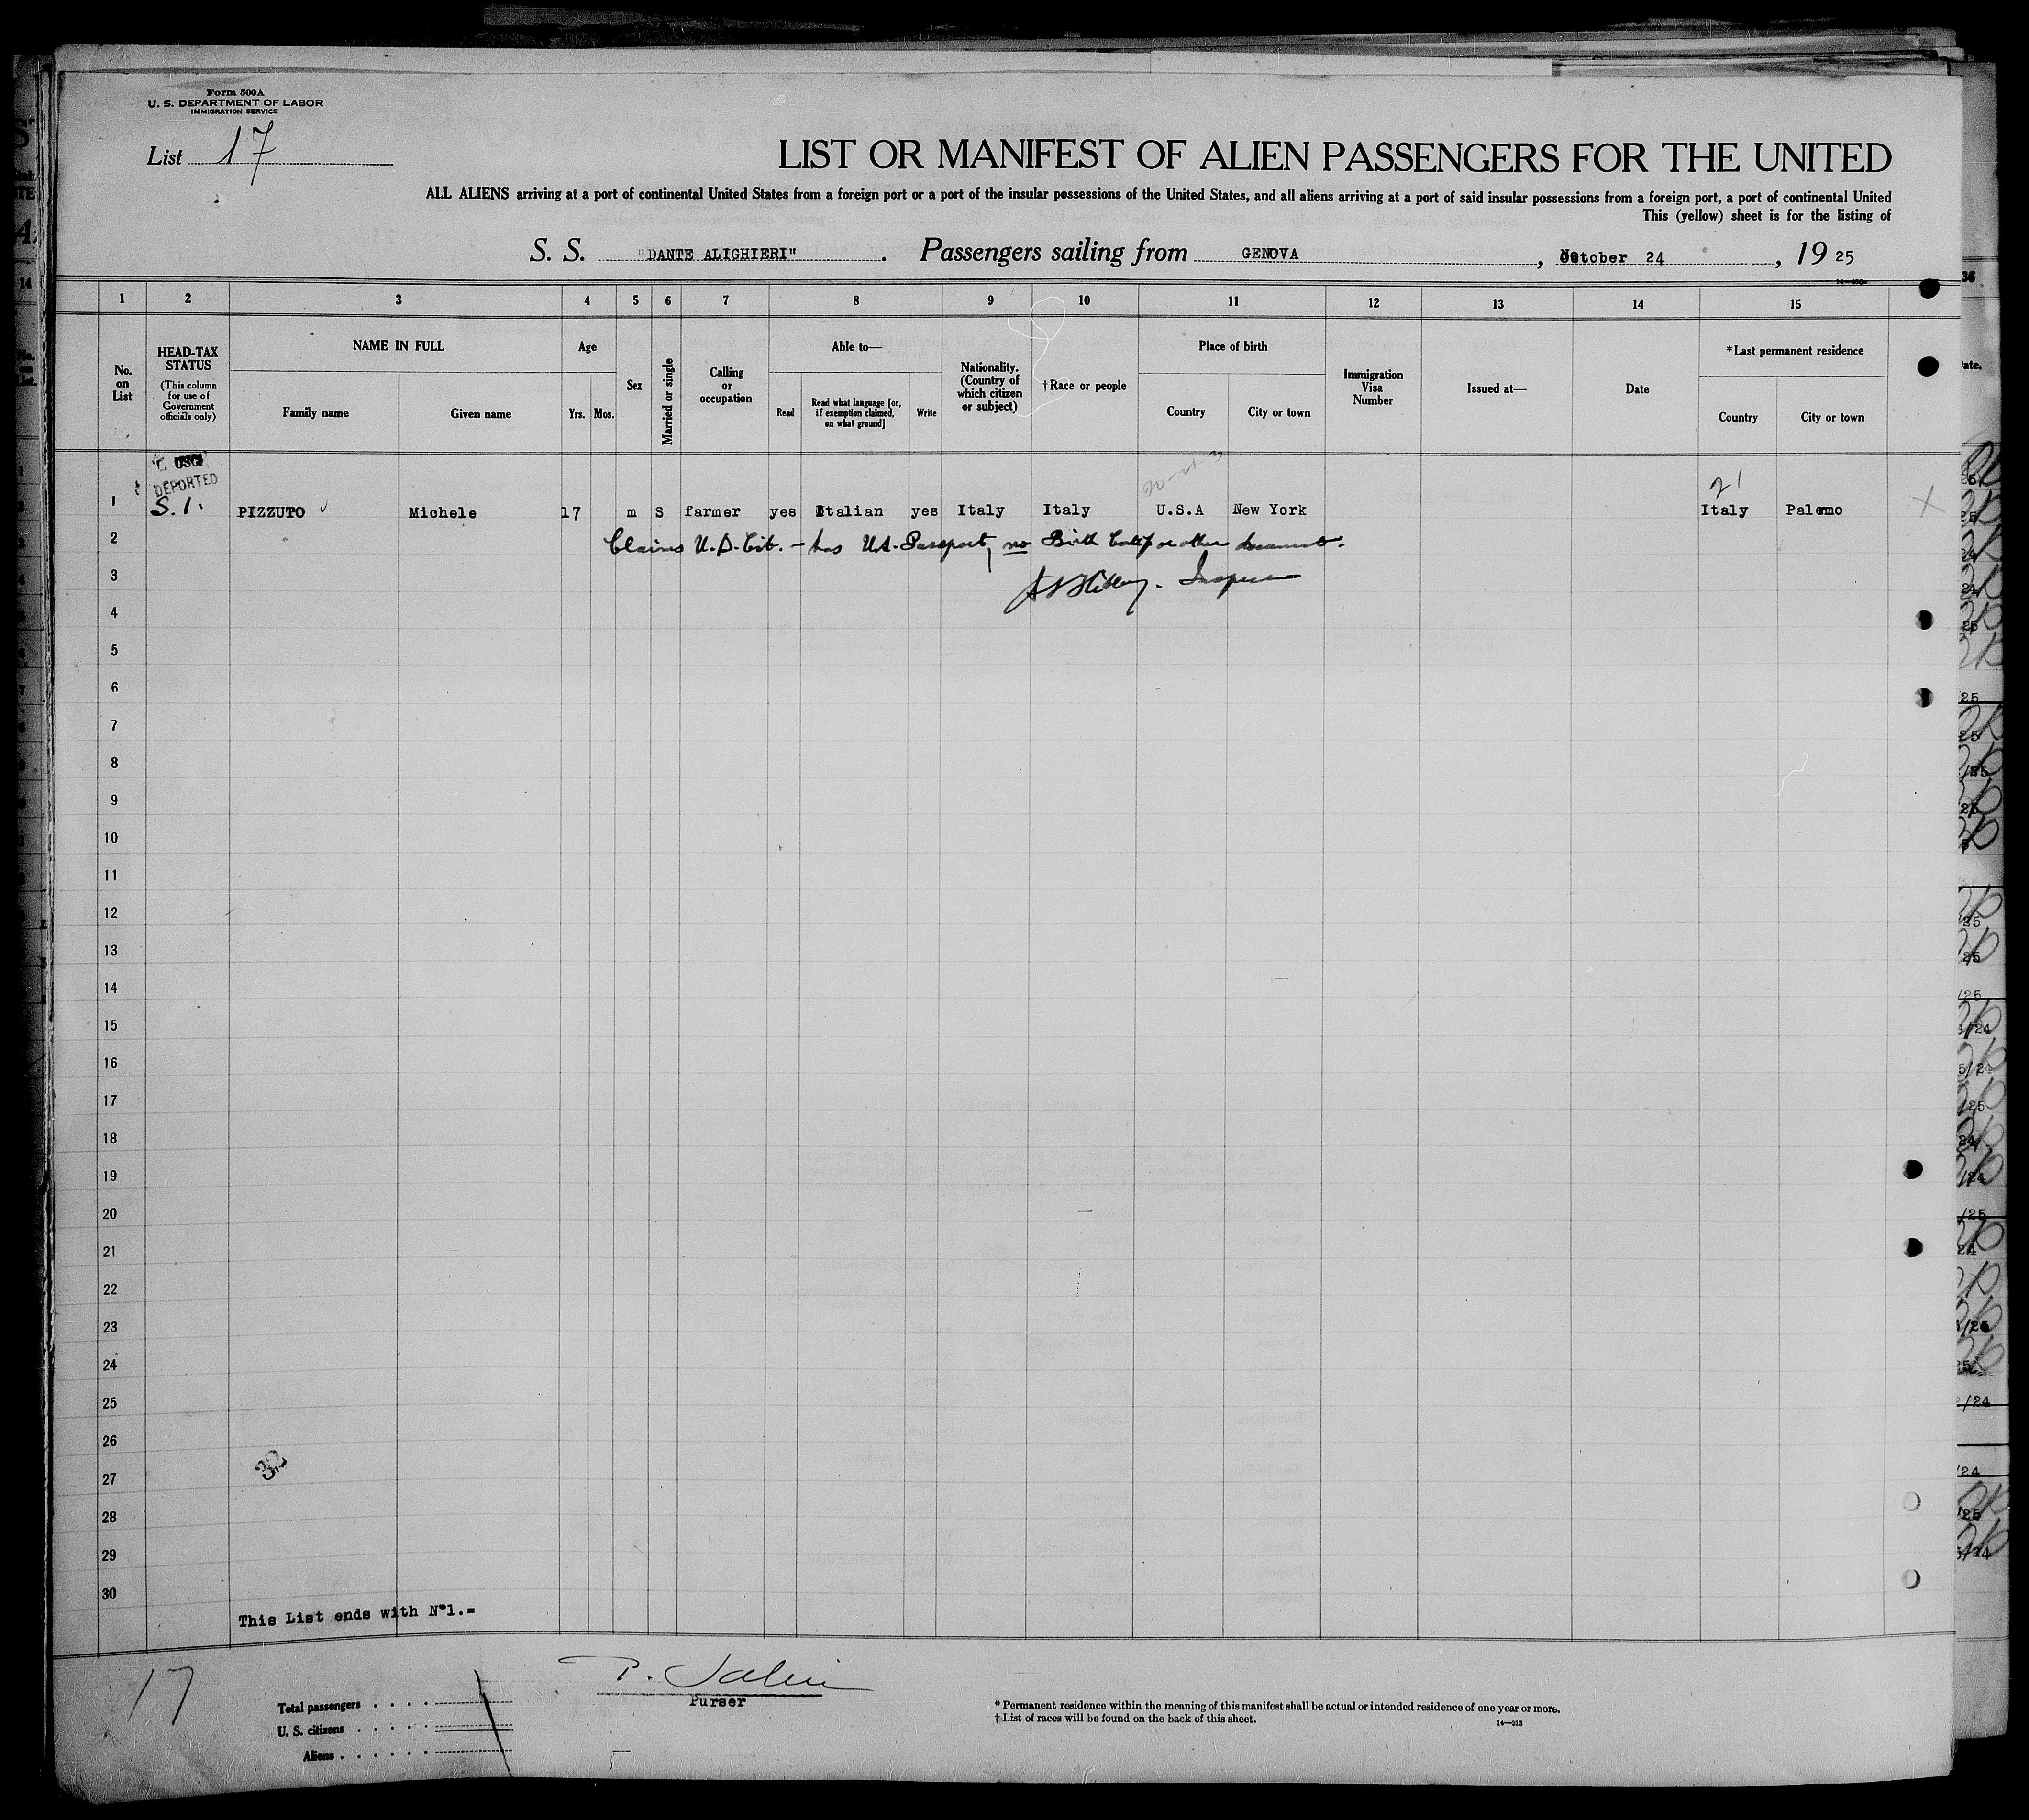 Form 500A
U. S. DEPARTMENT OF LABOR
IMMIGRATION SERVICE
List 17
LIST OR MANIFEST OF ALIEN PASSENGERS FOR THE UNITED
ALL ALIENS arriving at a port of continental United States from a foreign port or a port of the insular possessions of the United States, and all aliens arriving at a port of said insular possessions from a foreign port, a port of continental United
This (yellow) sheet is for the listing of
S. S. "DANTE ALIGHIERI" . Passengers sailing from GENOVA , October 24 , 19 25
1 2 3 4 5 6 7 8 9 10 11 12 13 14 15
No. on List
HEAD-TAX STATUS
(This column for use of Government officials only)
NAME IN FULL
Family name Given name
Age
Yrs. Mos.
Sex
Married or single
Calling or occupation
Able to—
Read
Read what language [or, if exemption claimed, on what ground]
Write
Nationality. (Country of which citizen or subject)
† Race or people
Place of birth
Country City or town
Immigration Visa Number
Issued at—
Date
*Last permanent residence
Country City or town
DEPORTED
21
1 S.I. PIZZUTO Michele 17 m S farmer yes Italian yes Italy Italy U.S.A New York Italy Palemo X
2 Claims U.S. Cit. – has U.S. Passport, no Birth Certif or other document.
3 Inspector
4
5
6
7
8
9
10
11
12
13
14
15
16
17
18
19
20
21
22
23
24
25
26
27
28
29
30
This List ends with N°1.=
17
P.
Purser
Total passengers . . . .
U. S. citizens . . . . .
Aliens . . . . . .
* Permanent residence within the meaning of this manifest shall be actual or intended residence of one year or more.
† List of races will be found on the back of this sheet.
14—213